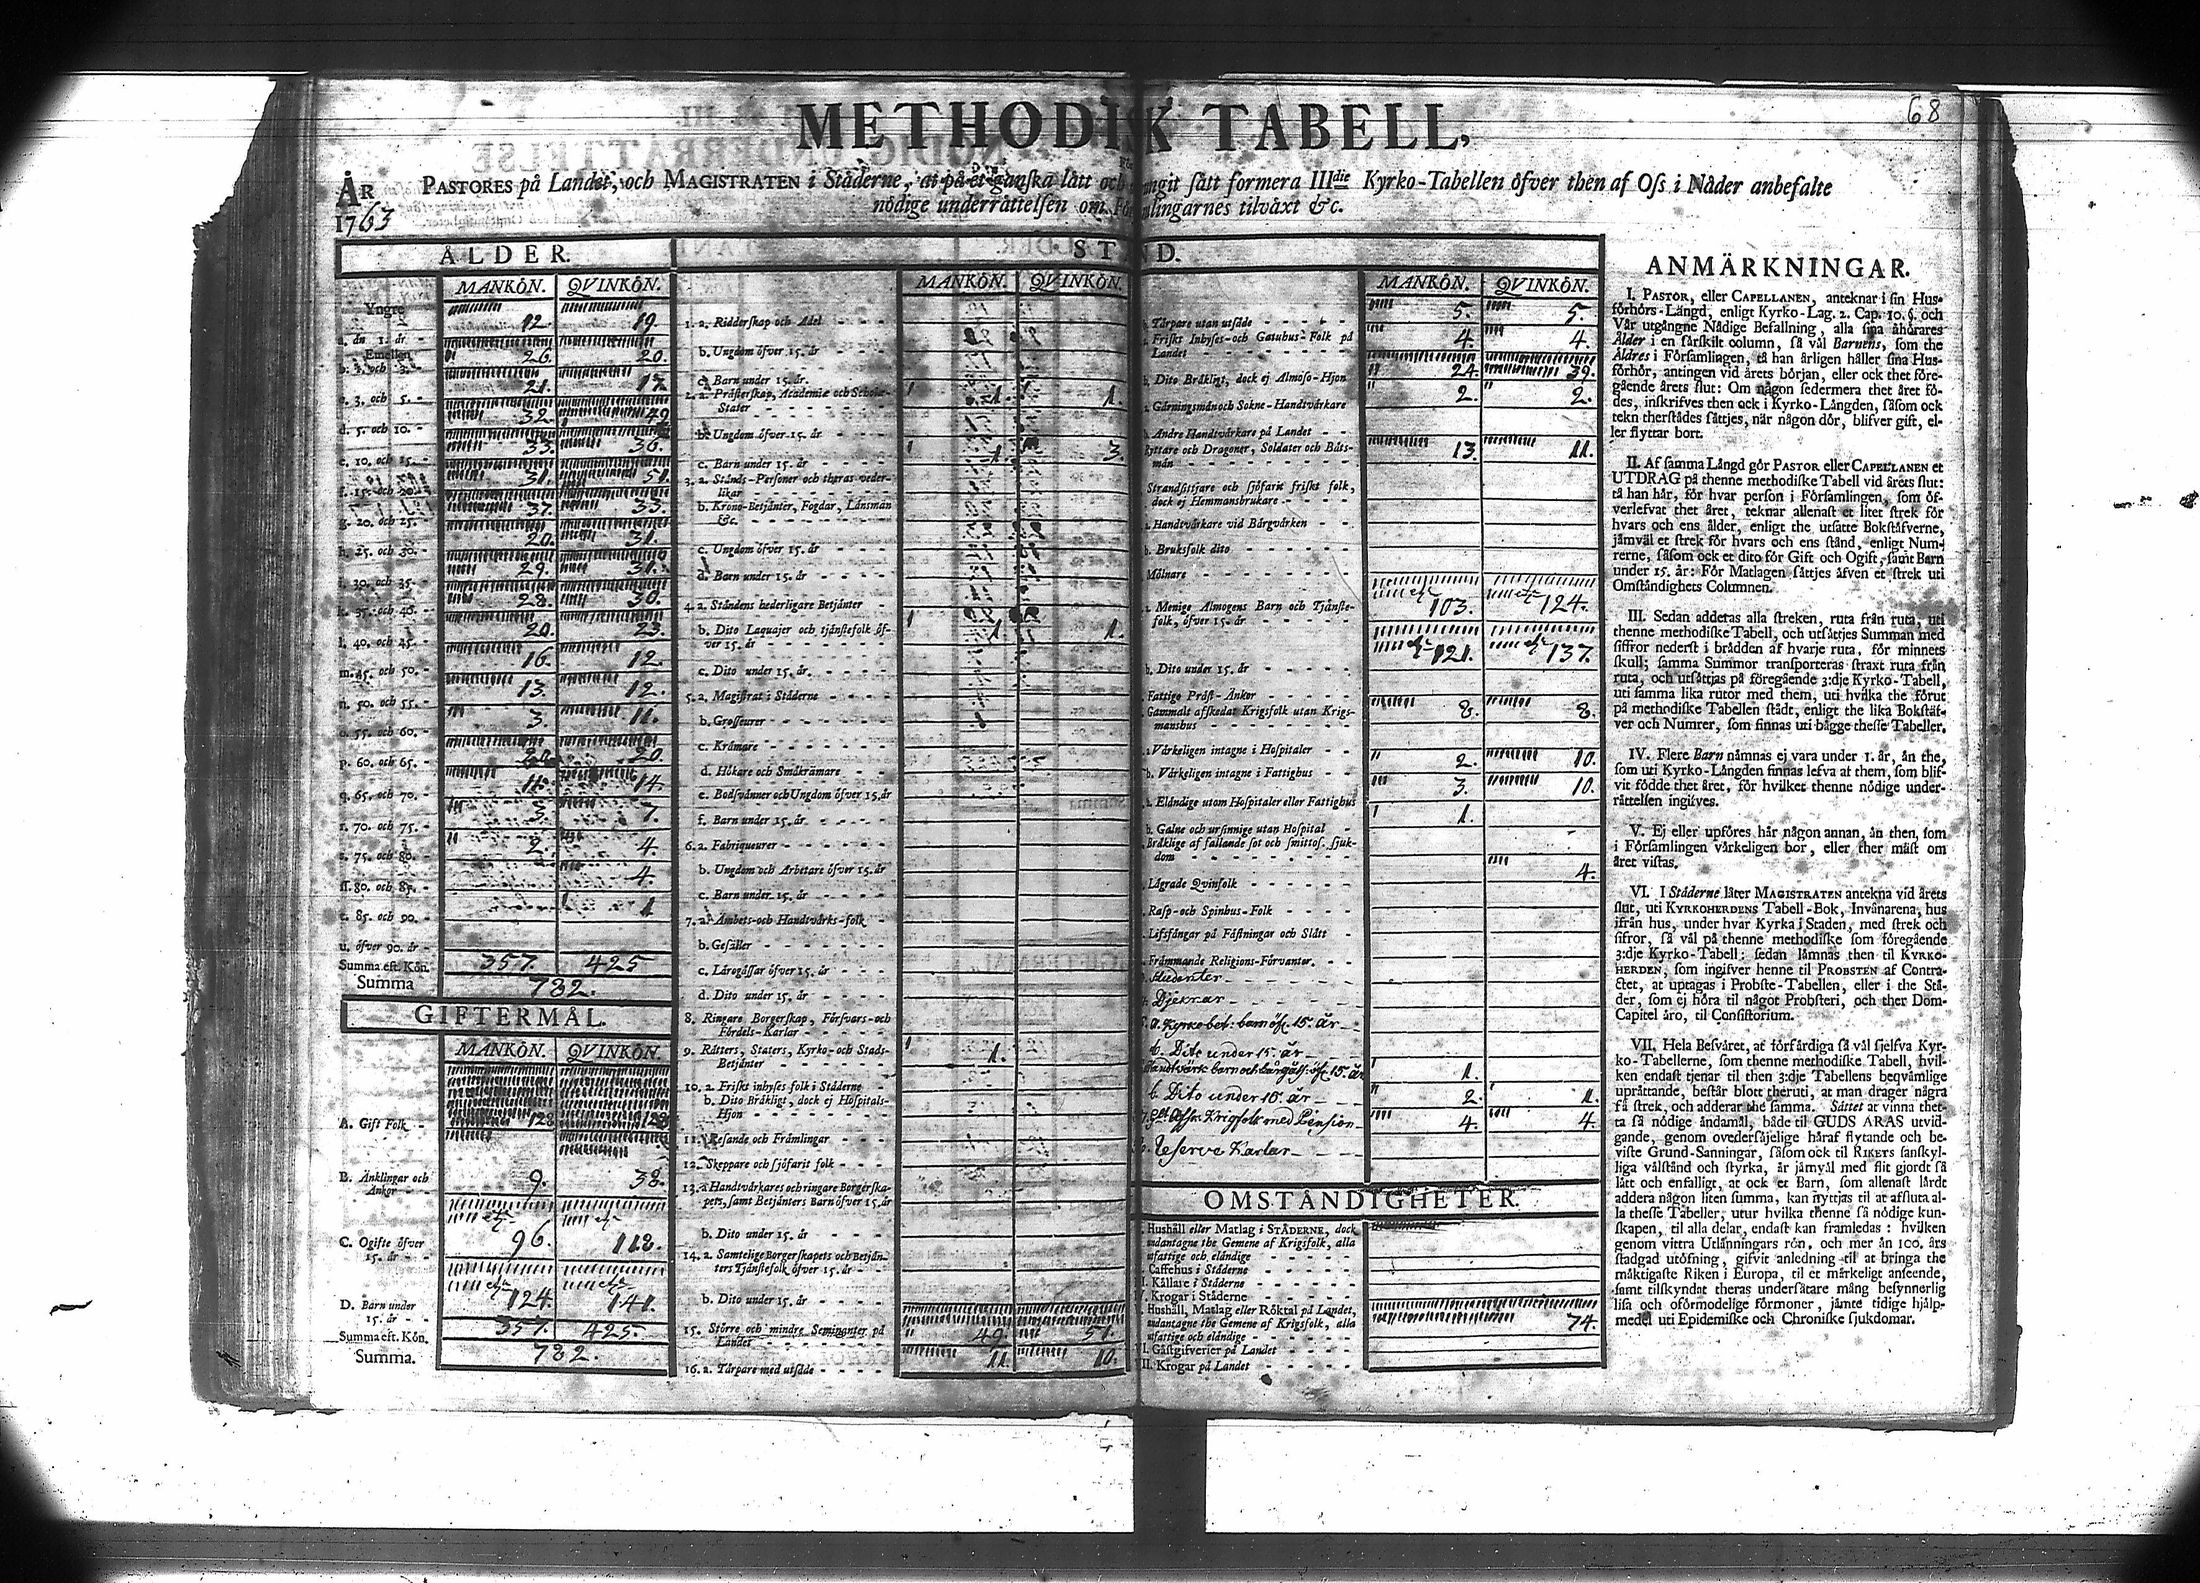 68
METHODIK TABELL,
ÅR 1763
PASTORES på Landet, och MAGISTRATEN i Städerne, at på et ganska lätt och sätt formera IIIdie Kyrko-Tabellen öfver then af Oss i Nåder anbefalte
nödige underrättelsen om tilväxt &c.
ÅLDER.
MANKÖN. QVINKÖN.
Yngre
a. än 1. år - 12. 19.
Emellan
b. 1. och 3. - 26. 20.
c. 3. och 5. - 21. 17.
d. 5. och 10. - 32. 49.
e. 10. och 15. - 33. 36.
f. 15. och 20. - 31. 51.
g. 20. och 25. - 37. 33.
h. 25. och 30. - 20. 31.
i. 30. och 35. - 29. 31.
k. 35. och 40. - 28. 30.
l. 40. och 45. - 20. 23.
m. 45. och 50. - 16. 12.
n. 50. och 55. - 13. 12.
o. 55. och 60. - 3. 11.
p. 60. och 65. - 20. 20.
q. 65. och 70. - 11. 14.
r. 70. och 75. - 3. 7.
s. 75. och 80. - 2. 4.
ff. 80. och 85. - 4.
t. 85. och 90. - 1
u. öfver 90. år -
Summa eft. Kön. 357. 425
Summa 782.
GIFTERMÅL.
MANKÖN. QVINKÖN.
A. Gift Folk - 128 128
B. Änklingar och
Änkor - - 9. 38.
etz etz
C. Ogifte öfver
15. år - - 96. 118.
etz etz
D. Barn under
15. år - - 124. 141.
Summa eft. Kön. 357. 425.
Summa. 782.
STÅND.
MANKÖN. QVINKÖN.
1. a. Ridderskap och Adel - - - -
b. Ungdom öfver 15. år - - - -
c. Barn under 15. år. - - - -
2. a. Prästerskap, Academiæ och Schole-
Stater - - - - 1. 1.
b. Ungdom öfver 15. år - - - -
c. Barn under 15. år - - - - 1. 3.
3. a. Stånds-Personer och theras veder-
likar - - - -
b. Krono-Betjänter, Fogdar, Länsmän
&c. - - - -
c. Ungdom öfver 15. år - - - -
d. Barn under 15. år - - - -
4. a. Ståndens hederligare Betjänter -
b. Dito Laquajer och tjänstefolk öf-
ver 15. år - - - - 1. 1.
c. Dito under 15. år. - - - -
5. a. Magistrat i Städerne - - - -
b. Grosseurer - - - -
c. Krämare - - - -
d. Hökare och Småkrämare - - -
e. Bodsvänner och Ungdom öfver 15. år
f. Barn under 15. år - - - -
6. a. Fabriqueurer - - - -
b. Ungdom och Arbetare öfver 15. år
c. Barn under 15. år - - - -
7. a. Ämbets-och Handtvärks-folk -
b. Gesäller - - - -
c. Lärogässar öfver 15. år - - -
d. Dito under 15. år - - - -
8. Ringare Borgerskap, Försvars-och
Fördels-Karlar - - - -
9. Rätters, Staters, Kyrko-och Stads-
Betjänter - - - - 1.
10. a. Friskt inhyses folk i Städerne -
b. Dito Bräkligt, dock ej Hospitals-
Hjon - - - -
11. Resande och Främlingar - - -
12. Skeppare och sjöfarit folk - - -
13. a Handtvärkares och ringare Borgerska-
pets, samt Betjänters Barn öfver 15. år
b. Dito under 15. år - - - -
14. a. Samtelige Borgerskapets och Betjän-
ters Tjänstefolk öfver 15. år - -
b. Dito under 15. år - - - -
15. Större och mindre Seminanter på
Landet - - - - 49. 51.
16. a. Torpare med utsäde - - - 11. 10.
MANKÖN. QVINKÖN.
Torpare utan utsäde - - - - 5. 5.
Friskt Inhyses-och Gatuhus-Folk på
Landet - - - - 4. 4.
b. Dito Bräkligt, dock ej Almoso-Hjon 24. 39.
Gärningsmän och Sokne-Handtvärkare 2. 2.
Andre Handtvärkare på Landet - -
Ryttare och Dragoner, Soldater och Båts-
män - - - - 13. 11.
Strandsittjare och sjöfarit friskt folk,
dock ej Hemmansbrukare - - -
Handtvärkare vid Bärgvärken - -
b. Bruksfolk dito - - - -
Mölnare - - - -
etz etz
Menige Almogens Barn och Tjänste-
folk, öfver 15. år - - - - 103. 124.
b. Dito under 15. år - - - - 121. 137.
Fattige Präst-Änkor - - - -
Gammalt afskedat Krigsfolk utan Krigs-
manshus - - - - 8. 8.
Värkeligen intagne i Hospitaler - -
b. Värkeligen intagne i Fattighus - 2. 10.
Eländige utom Hospitaler eller Fattighus 3. 10.
b. Galne och ursinnige utan Hospital - 1.
Bräklige af fallande sot och smittos. sjuk-
dom - - - -
Lägrade Qvinfolk - - - - 4.
Rasp-och Spinhus-Folk - - - -
Lifsfångar på Fästningar och Slått -
Främmande Religions-Förvanter. - -
Studenter - - - -
Djeknar - - - -
a. Kyrko bet: barn öfv. 15. år - -
b. Dito under 15. år - - -
Handtvärk barn och lärogäss: öfv. 15. år 1.
b. Dito under 15. år - - 2. 1.
Afsk. Krigsfolk med Pension - 4. 4.
Reserve Karlar - - - -
OMSTÄNDIGHETER.
Hushåll eller Matlag i STÄDERNE, dock
undantagne the Gemene af Krigsfolk, alla
utfattige och eländige - - - -
Caffehus i Städerne - - - -
Källare i Städerne - - - -
Krogar i Städerne - - - -
Hushåll, Matlag eller Röktal på Landet,
undantagne the Gemene af Krigsfolk, alla
utfattige och eländige - - - - 74.
Gästgifverier på Landet - - - -
II. Krogar på Landet - - - -
ANMÄRKNINGAR.
I. PASTOR, eller CAPELLANEN, anteknar i sin Hus-
förhörs-Längd, enligt Kyrko-Lag. 2. Cap. 10. §. och
Vår utgångne Nådige Befallning, alla sina åhörares
Ålder i en särskilt column, så väl Barnens, som the
Äldres i Församlingen, tå han årligen håller sina Hus-
förhör, antingen vid årets början, eller ock thet före-
gående årets slut: Om någon sedermera thet året fö-
des, inskrifves then ock i Kyrko-Längden, såsom ock
tekn therstädes sättjes, när någon dör, blifver gift, el-
ler flyttar bort.
II. Af samma Längd gör PASTOR eller CAPELLANEN et
UTDRAG på thenne methodiske Tabell vid årets slut:
tå han här, för hvar person i Församlingen, som öf-
verlefvat thet året, teknar allenast et litet strek för
hvars och ens ålder, enligt the utsatte Bokstäfverne,
jämväl et strek för hvars och ens stånd, enligt Num-
rerne, såsom ock et dito för Gift och Ogift, samt Barn
under 15. år: För Matlagen sättjes äfven et strek uti
Omständighets Columnen.
III. Sedan adderas alla streken, ruta från ruta, uti
thenne methodiske Tabell, och utsättjes Summan med
siffror nederst i brädden af hvarje ruta, för minnets
skull; samma Summor transporteras straxt ruta från
ruta, och utsättjas på föregående 3:dje Kyrko-Tabell,
uti samma lika rutor med them, uti hvilka the förut
på methodiske Tabellen städt, enligt the lika Bokstäf-
ver och Numrer, som finnas uti bägge thesse Tabeller.
IV. Flere Barn nämnas ej vara under 1. år, än the,
som uti Kyrko-Längden finnas lefva at them, som blif-
vit födde thet året, för hvilket thenne nödige under-
rättelsen ingifves.
V. Ej eller upföres här någon annan, än then, som
i Församlingen värkeligen bor, eller ther mäst om
året vistas.
VI. I Städerne låter MAGISTRATEN antekna vid årets
slut, uti KYRKOHERDENS Tabell-Bok, Invånarena, hus
ifrån hus, under hvar Kyrka i Staden, med strek och
sifror, så väl på thenne methodiske som föregående
3:dje Kyrko-Tabell: sedan lämnas then til KYRKO-
HERDEN, som ingifver henne til PROBSTEN af Contra-
ctet, at uptagas i Probste-Tabellen, eller i the Stä-
der, som ej höra til något Probsteri, och ther Dom-
Capitel äro, til Consistorium.
VII. Hela Besväret, at förfärdiga så väl sjelfva Kyr-
ko-Tabellerne, som thenne methodiske Tabell, hvil-
ken endast tjenar til then 3:dje Tabellens beqvämlige
uprättande, består blott theruti, at man drager några
få strek, och adderar the samma. Sättet at vinna thet-
ta så nödige ändamål, både til GUDS ÄRAS utvid-
gande, genom ovedersäjelige häraf flytande och be-
viste Grund-Sanningar, såsom ock til RIKETS sanskyl-
liga välstånd och styrka, är jämväl med flit gjordt så
lätt och enfalligt, at ock et Barn, som allenast lärdt
addera någon liten summa, kan nyttjas til at afsluta al-
la thesse Tabeller, utur hvilka thenne så nödige kun-
skapen, til alla delar, endast kan framledas: hvilken
genom vittra Utlänningars rön, och mer än 100. års
stadgad utöfning, gifvit anledning til at bringa the
mäktigaste Riken i Europa, til et märkeligt anseende,
samt tilskyndat theras undersåtare mång besynnerlig
lisa och oförmodelige förmoner, jämte tidige hjälp-
medel uti Epidemiske och Chroniske sjukdomar.